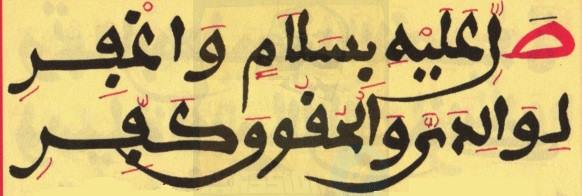 صَلِّ عَلَيْهِ بِسَلَامٍ وَاغْفِرِ
لِوَالِدَيَّ وَالْحُقُوقَ كَفِّرِ